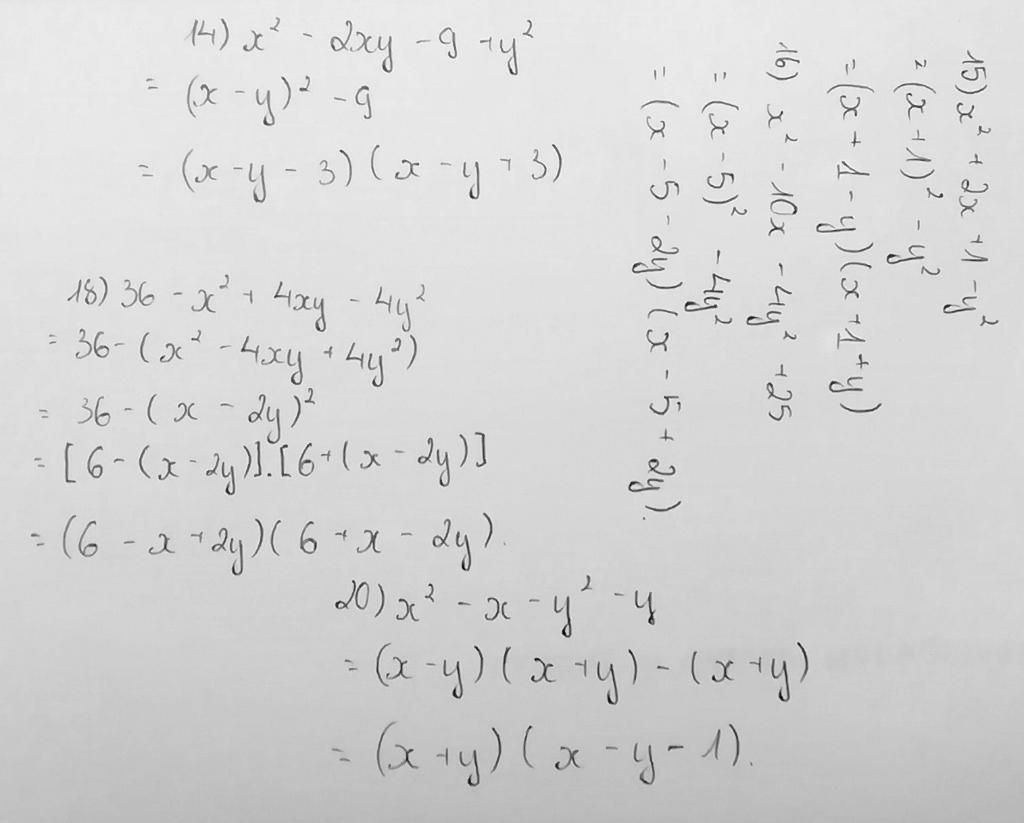 14) x² - 2xy - 9 + y²
= (x - y)² - 9
= (x - y - 3) (x - y + 3)
15) x² + 2x + 1 - y²
= (x + 1)² - y²
= (x + 1 - y) (x + 1 + y)
16) x² - 10x - 4y² + 25
= (x - 5)² - 4y²
= (x - 5 - 2y) (x - 5 + 2y).
18) 36 - x² + 4xy - 4y²
= 36 - (x² - 4xy + 4y²)
= 36 - (x - 2y)²
= [6 - (x - 2y)].[6 + (x - 2y)]
= (6 - x + 2y)(6 + x - 2y).
20) x² - x - y² - y
= (x - y) (x + y) - (x + y)
= (x + y) (x - y - 1).